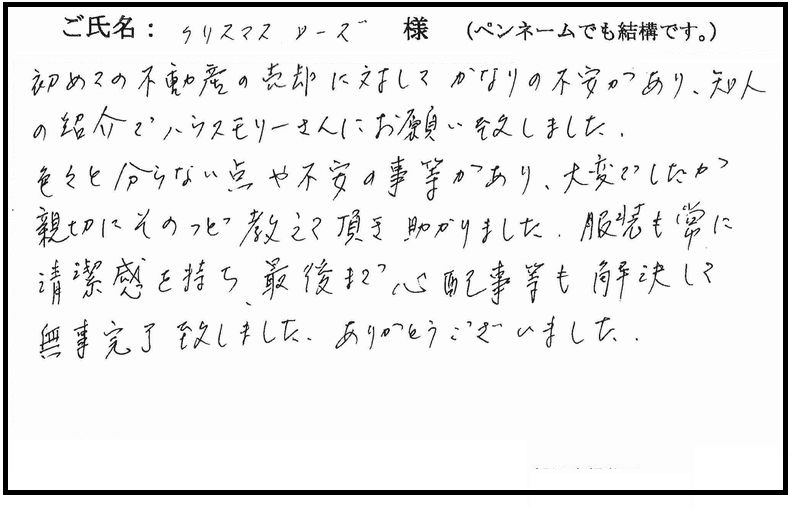 ご氏名： クリスマスローズ 様 （ペンネームでも結構です。）
初めての不動産の売却に対してかなりの不安があり、知人
の紹介でハウスモリーさんにお願い致しました。
色々と分らない点や不安の事等があり、大変でしたが
親切にそのつど教えて頂き助かりました。服装も常に
清潔感を持ち、最後まで心配事等も解決して
無事完了致しました。ありがとうございました。